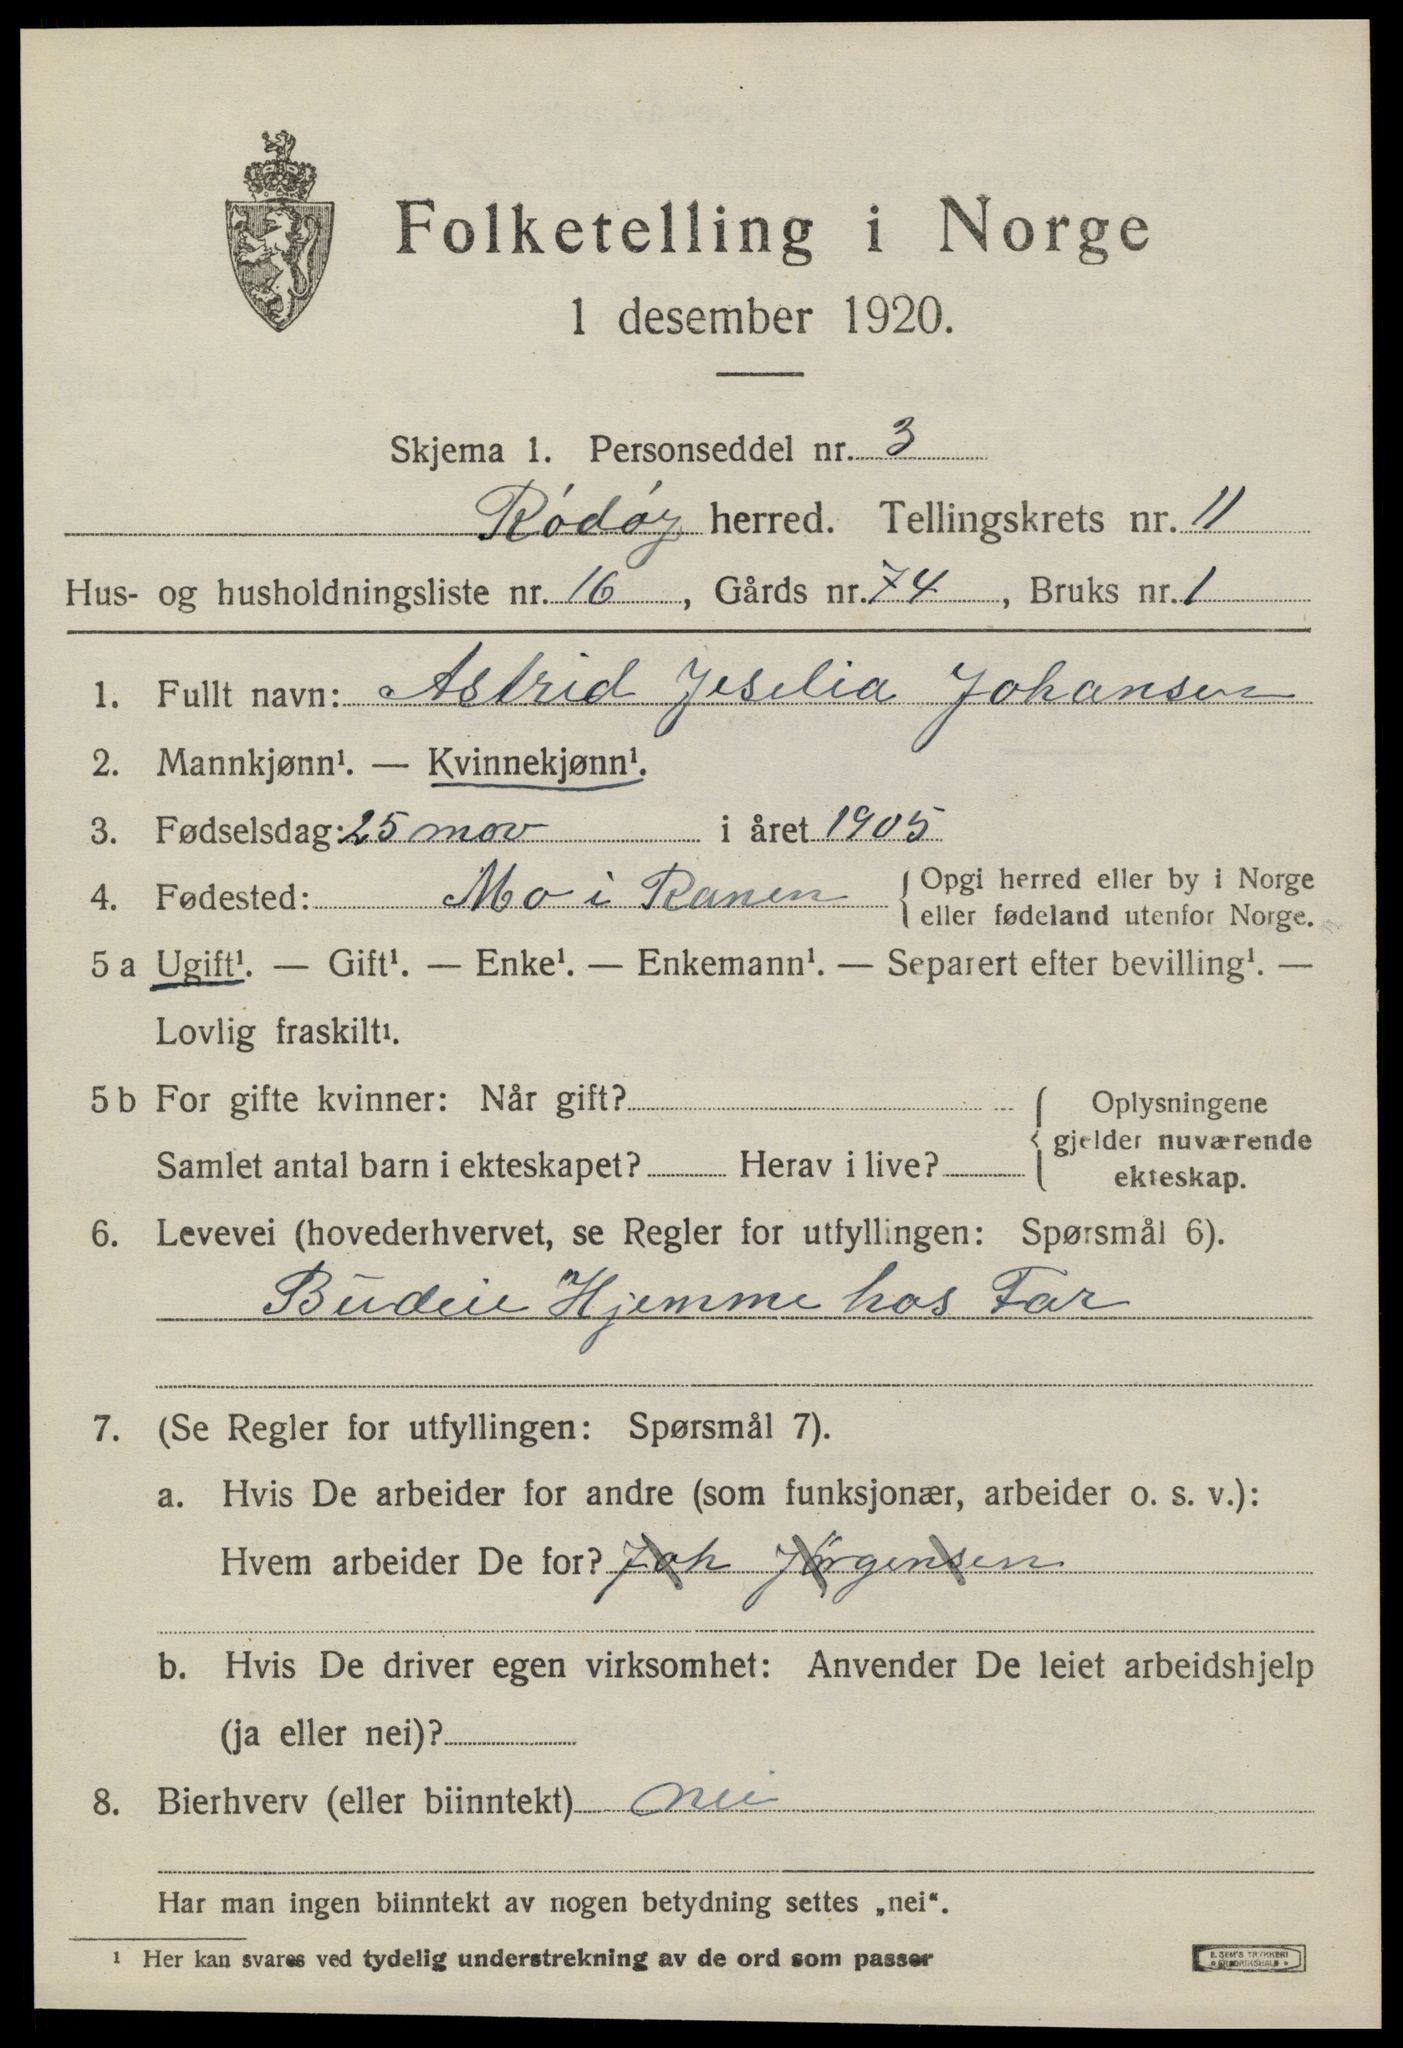 Folketelling i Norge
1 desember 1920.
Skjema 1. Personseddel nr. 3
Rødøy herred. Tellingskrets nr. 11
Hus- og husholdningsliste nr. 16, Gårds nr. 74, Bruks nr. 1
1. Fullt navn: Astrid Jeselia Johansen
2. Mannkjønn¹. — Kvinnekjønn¹.
3. Fødselsdag: 25 nov i året 1905
4. Fødested: Mo i Ranen { Opgi herred eller by i Norge
eller fødeland utenfor Norge.
5 a Ugift¹. — Gift¹. — Enke¹. — Enkemann¹. — Separert efter bevilling¹. —
Lovlig fraskilt¹.
5 b For gifte kvinner: Når gift? { Oplysningene
gjelder nuværende
Samlet antal barn i ekteskapet? Herav i live? ekteskap.
6. Levevei (hovederhvervet, se Regler for utfyllingen: Spørsmål 6).
Budeie Hjemme hos Far
7. (Se Regler for utfyllingen: Spørsmål 7).
a. Hvis De arbeider for andre (som funksjonær, arbeider o. s. v.):
Hvem arbeider De for? Joh Jørgensen
b. Hvis De driver egen virksomhet: Anvender De leiet arbeidshjelp
(ja eller nei)?
8. Bierhverv (eller biinntekt) nei
Har man ingen biinntekt av nogen betydning settes „nei“.
¹ Her kan svares ved tydelig understrekning av de ord som passer
E. SEM'S TRYKKERI
FREDRIKSHALD